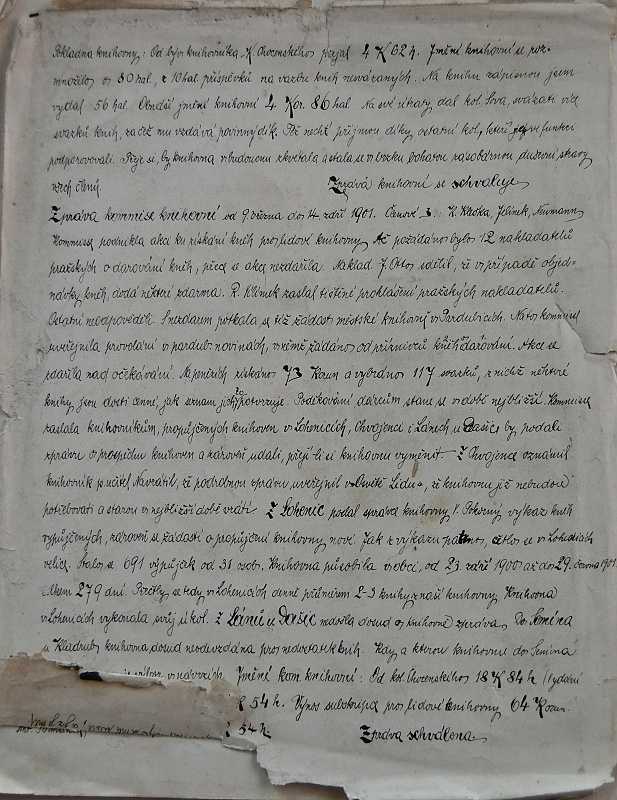 Pokladna knihovny: Od býv. knihovníka K. Chocenského přijal 4 K 62 h. Jmění knihovní se roz-
množilo o 80 hal. z 10 hal. příspěvků na vazbu knih nesvázaných. Na knihu zápisnou jsem
vydal 56 hal. Obnáší jmění knihovní 4 Kor. 86 hal. Na své útraty dal kol. Sova, svázati
svazků knih, začež mu vzdává povinný dík. Též nechť přijmou díky ostatní kol., kteří jej ve funkci
podporovali. Přeje si, by knihovna v budoucnu zkvétala a stala se v brzku bohatou zásobárnou duševní stravy
všech členů. Zpráva knihovní se schvaluje.
Zpráva kommise knihovní od 9. března do 14. září 1901. Členové K. Kločka, Jelínek, Neumann.
Kommise podnikla akci ku získání knih pro lidové knihovny. Ač požádáno bylo 12 nakladatelů
pražských o darování knih, přece se akce nezdařila. Naklad. J. Otto sdělil, že v případě objed-
návky knih, dodá některé zdarma. R. Klimek zaslal tištěné prohlášení pražských nakladatelů.
Ostatní neodpověděli. S nezdarem potkala se též žádost městské knihovny v Pardubicích. Na to kommise
uveřejnila provolání v pardub. novinách, v němž žádáno od příznivců knih darování. Akce se
zdařila nad očekávání. Na penězích získáno 73 Korun a vybráno 117 svazků, z nichž některé
knihy jsou dosti cenné, jak seznam jich potvrzuje. Poděkování dárcům, stane se v době nejbližší. Kommise
zaslala knihovníkům, propůjčených knihoven v Lohenicích, Chvojenci i Lánech u Dašic by podali
zprávu o prospěchu knihoven a zároveň udali, přejí-li si knihovnu vyměnit. Z Chvojence oznámil
knihovník p. učitel Navrátil, že podrobnou zprávu uveřejnil v Osvětě Lidu, že knihovnu již nebudou
potřebovati a starou v nejbližší době vrátí. Z Lohenic podal správce knihovny V. Pokorný výkaz knih
vypůjčených, zároveň se žádostí o propůjčení knihovny nové. Jak z výkazu patrno, četlo se v Lohenicích
velice. Stalo se 691 výpůjček od 31 osob. Knihovna působila v obci, od 23. září 1900 až do 29. června 1901.
Úkem 279 dní. Přečtly se tedy v Lohenicích denně průměrem 2-3 knihy z naší knihovny. Knihovna
v Lohenicích vykonala svůj úkol. Z Lánů u Dašic nedošla dosud o knihovně zpráva. Do Semína
u Kladrub knihovna dosud neodevzdána pro nedostatek knih. Kdy a kterou knihovnu do Semína
v návrzích. Jmění kom. knihovní: Od kol. Chocenského 18 K 84 h (vydání
K 54 h. Výnos subskripce pro lidové knihovny 64 Korun.
54 h. Zpráva schválena.